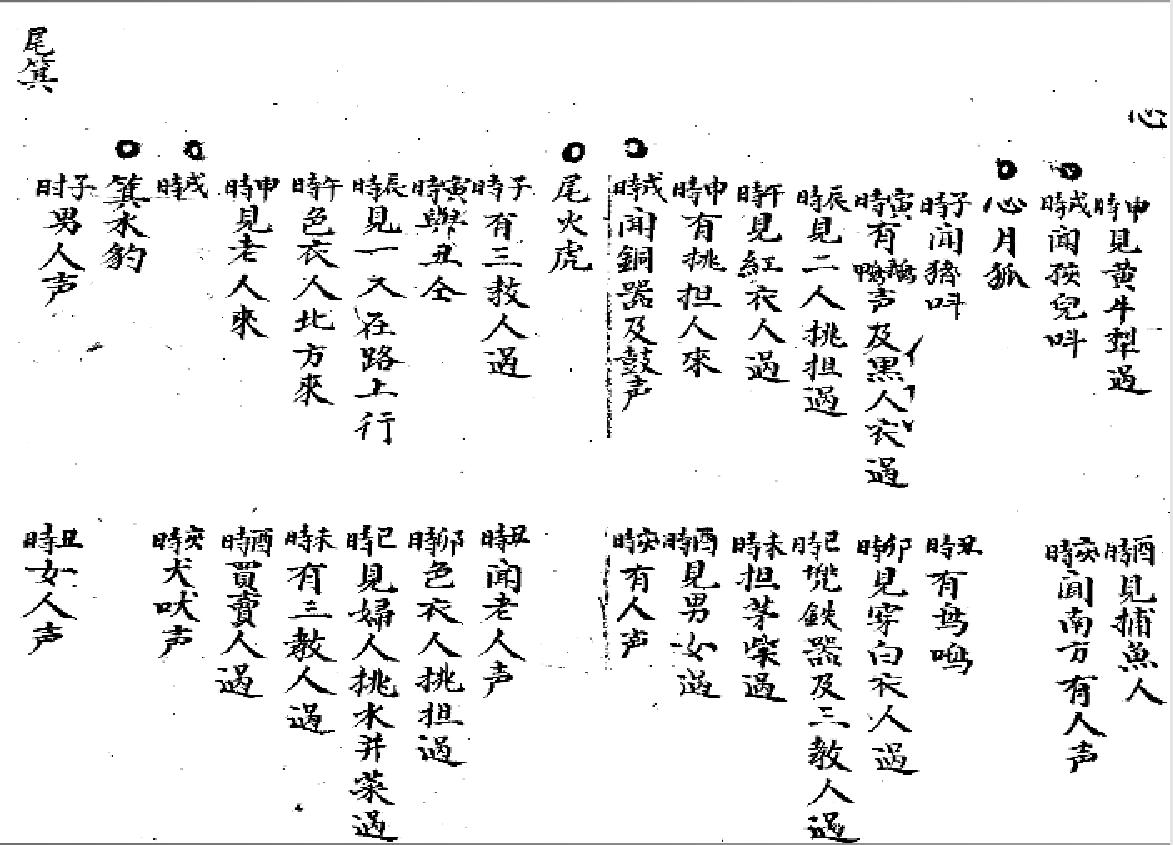 心
申時見黄牛犁過
酉時見捕魚人
戌時闻孩兒呌
亥時闻南方有人声
心月狐
子時闻猪呌
丑時有鸟鳴
寅時有鵝鴨声及黑人衣過
卯時見穿白衣人過
辰時見二人挑担過
巳時攪鉄器及三教人過
午時見紅衣人過
未時担茅柴過
申時有挑担人來
酉時見男女過
戌時闻銅器及鼓声
亥時有人声
尾火虎
子時有三教人過
丑時闻老人声
寅時與丑仝
卯時色衣人挑担過
辰時見一人在路上行
巳時見婦人挑水并菜過
午時色衣人北方來
未時有三教人過
申時見老人來
酉時買賣人過
戌時
亥時犬吠声
箕水豹
子时男人声
丑時女人声
尾箕